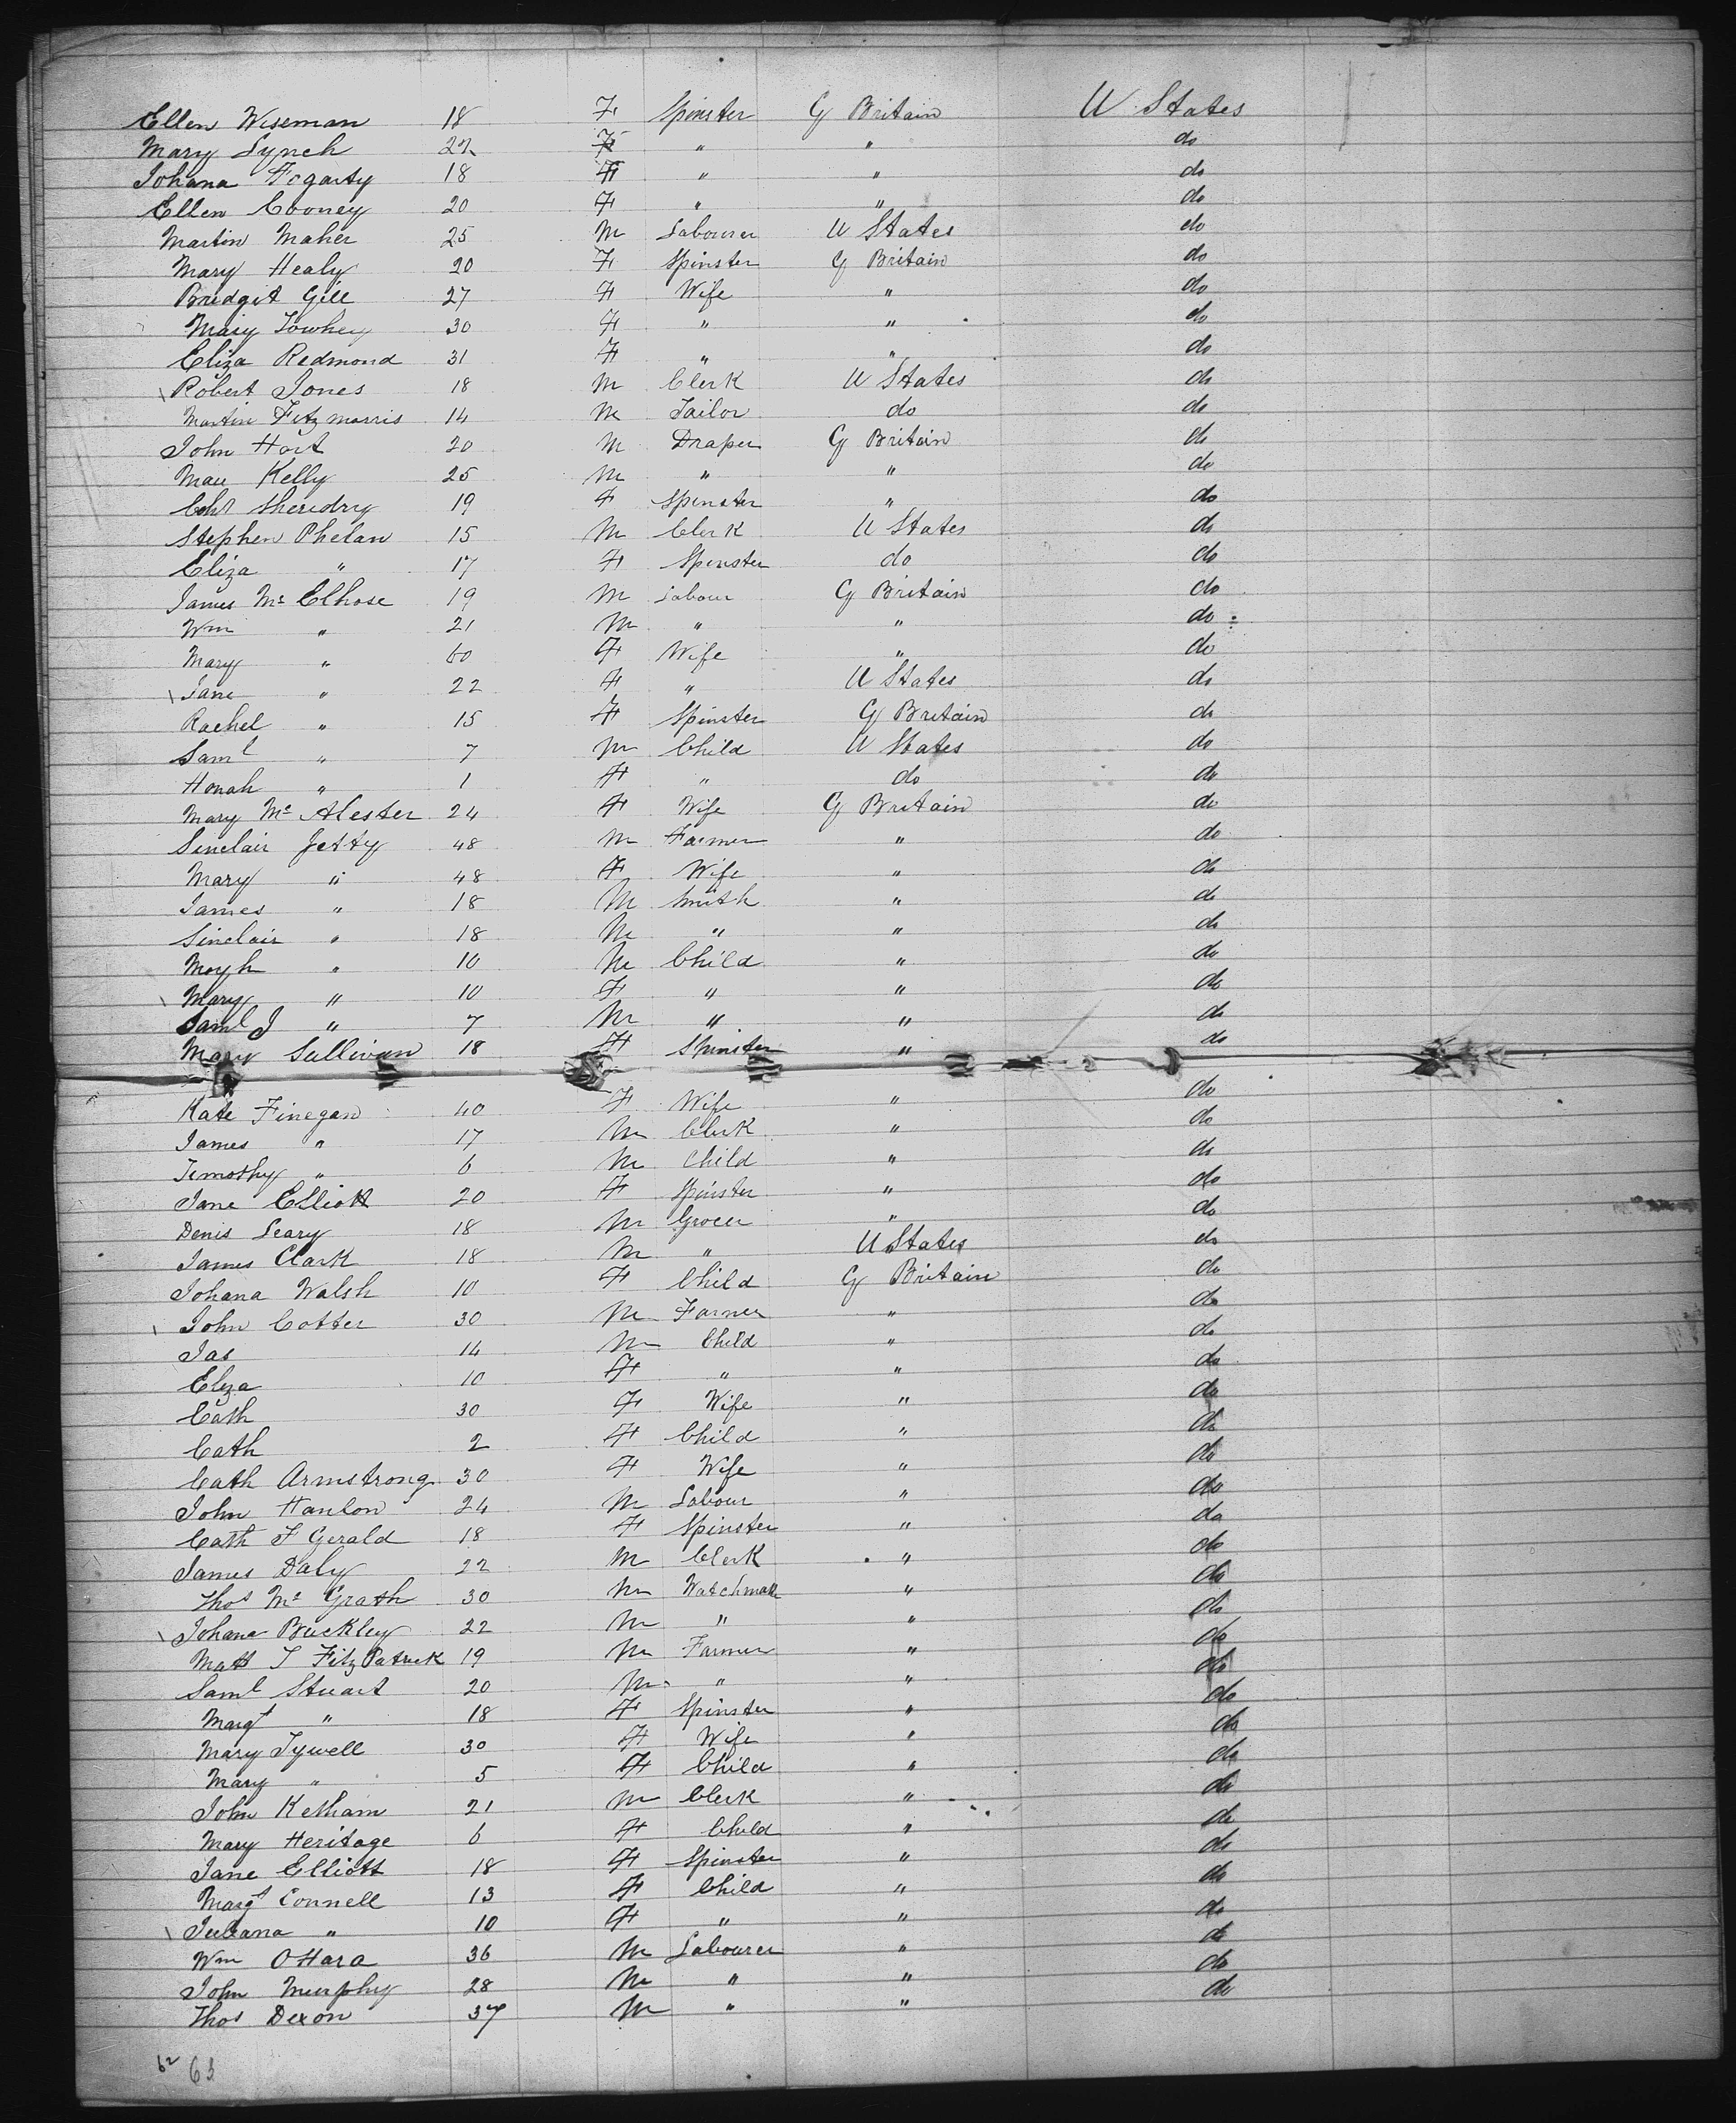 Ellen Wiseman 18 F Spinster G Britain U States
Mary Lynch 22 F " " do
Johana Fogarty 18 F " " do
Ellen Cooney 20 F " " do
Martin Maher 25 M Labourer U States do
Mary Healy 20 F Spinster G Britain do
Bridget Gill 27 F Wife " do
Mary Towhey 30 F " " do
Eliza Redmond 31 F " " do
Robert Jones 18 M Clerk U States do
Martin Fitzmorris 14 M Tailor do do
John Hart 20 M Draper G Britain do
Kelly 25 M " " do
19 F Spinster " do
Stephen Phelan 15 M Clerk U States do
Eliza " 17 F Spinster do do
James Mc Elhose 19 M Labour G Britain do
Wm " 21 M " " do
Mary " 60 F Wife " do
Jane " 22 F " U States do
Rachel " 15 F Spinster G Britain do
Saml " 7 M Child U States do
Honah " 1 F " do do
Mary Mc Alester 24 F Wife G Britain do
Sinclair Jetty 48 M Farmer " do
Mary " 48 F Wife " do
James " 18 M Smith " do
Sinclair " 18 M " " do
" 10 M Child " do
Mary " 10 F " " do
Saml J " 7 M " " do
Mary Sullivan 18 F Spinster " do
Kate Finegan 40 F Wife " do
James " 17 M Clerk " do
Timothy " 6 M Child " do
Jane Elliott 20 F Spinster " do
Denis Leary 18 M Grocer " do
James Clark 18 M " U States do
Johana Walsh 10 F Child G Britain do
John Cotter 30 M Farmer " do
Jas 14 M Child " do
Eliza 10 F " " do
Cath 30 F Wife " do
Cath 2 F Child " do
Cath Armstrong 30 F Wife " do
John Hanlon 24 M Labour " do
Cath F Gerald 18 F Spinster " do
James Daly 22 M Clerk " do
Thos Mc Grath 30 M Watchmak " do
Johana Buckley 22 M " " do
Matt J FitzPatrick 19 M Farmer " do
Saml Stuart 20 M " " do
Margt " 18 F Spinster " do
Mary Tywell 30 F Wife " do
Mary " 5 F Child " do
John Ketham 21 M Clerk " do
Mary Heritage 6 F Child " do
Jane Elliott 18 F Spinster " do
Margt Connell 13 F Child " do
Juliana " 10 F " " do
Wm OHara 36 M Labourer " do
John Murphy 28 M " " do
Thos Dexon 37 M " " do
62 63